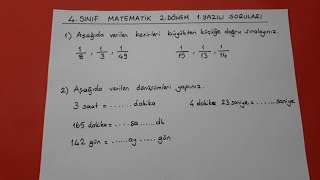 4. SINIF MATEMATİK 2. DÖNEM 1. YAZILI SORULARI
1) Aşağıda verilen kesirleri büyükten küçüğe doğru sıralayınız.
1/8, 1/3, 1/49 1/15, 1/13, 1/14
2) Aşağıda verilen dönüşümleri yapınız.
3 saat = ....... dakika 4 dakika 23 saniye = ....... saniye
165 dakika = .... sa .... dk
142 gün = ...... ay ..... gün